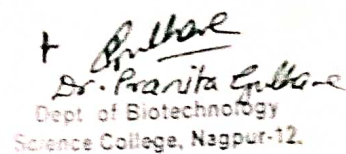 Dr. Pranita Gulhane
Dept of Biotechnology
Science College, Nagpur-12.